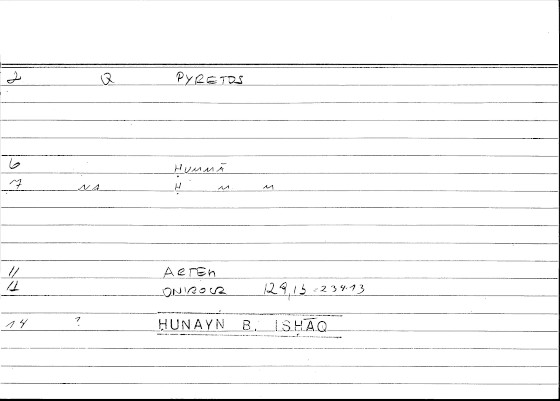 2 Q PYRETOS
6 ḤUMMĀ
7 NA Ḥ M M
11 ARTEM
12 ONIROCR 129,15 - 234.13
14 ? ḤUNAYN B. ISḤĀQ